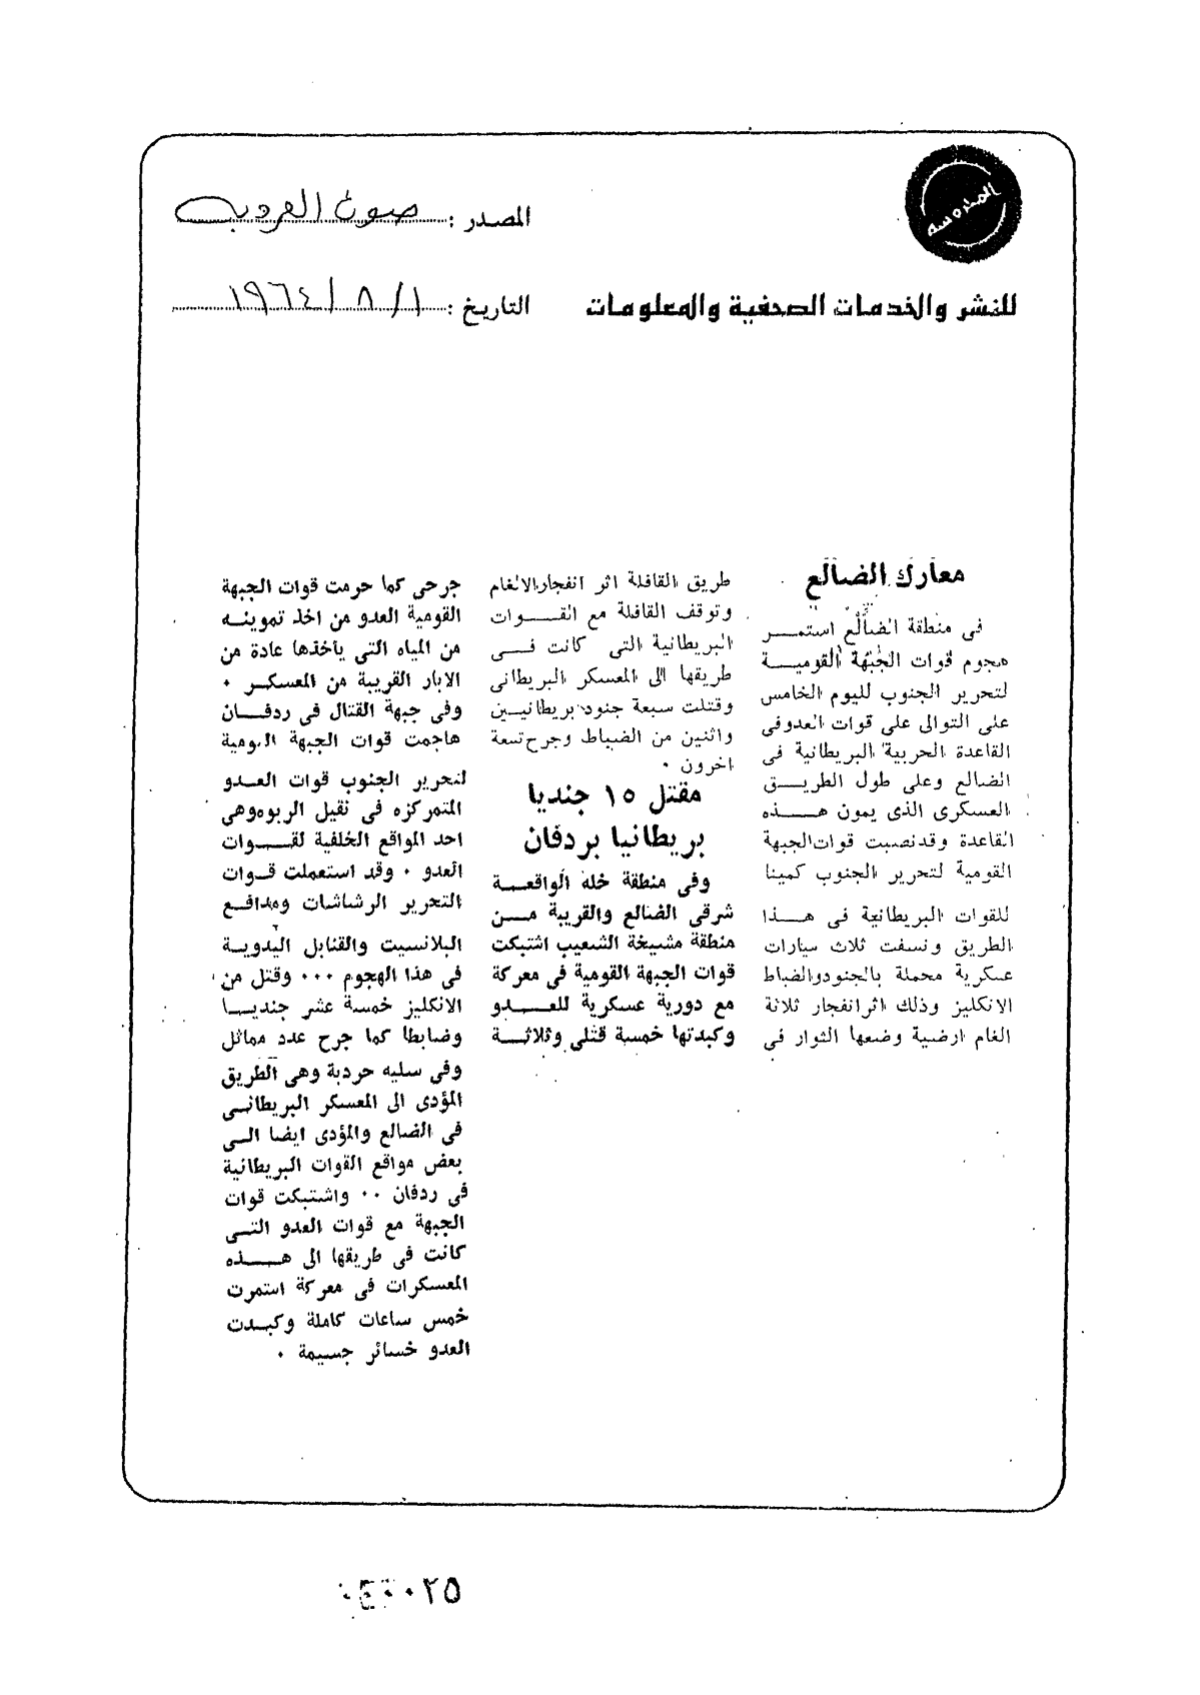 المصدر : صوت العروبة
التاريخ : ١ / ٨ / ١٩٦٤
للنشر والخدمات الصحفية والمعلومات
معارك الضالع
فى منطقة الضالع استمر
هجوم قوات الجبهة القومية
لتحرير الجنوب لليوم الخامس
على التوالى على قوات العدوفى
القاعدة الحربية البريطانية فى
الضالع وعلى طول الطريق
العسكرى الذى يمون هذه
القاعدة وقدنصبت قوات الجبهة
القومية لتحرير الجنوب كمينا
للقوات البريطانية فى هذا
الطريق ونسفت ثلاث سيارات
عسكرية محملة بالجنودوالضباط
الانكليز وذلك اثرانفجار ثلاثة
الغام ارضية وضعها الثوار فى
طريق القافلة اثر انفجارالالغام
وتوقف القافلة مع القوات
البريطانية التى كانت فى
طريقها الى المعسكر البريطانى
وقتلت سبعة جنود بريطانيين
واثنين من الضباط وجرح تسعة
اخرون .
مقتل ١٥ جنديا
بريطانيا بردفان
وفى منطقة خله الواقعة
شرقى الضالع والقريبة من
منطقة مشيخة الشعيب اشتبكت
قوات الجبهة القومية فى معركة
مع دورية عسكرية للعدو
وكبدتها خمسة قتلى وثلاثة
جرحى كما حرمت قوات الجبهة
القومية العدو من اخذ تموينه
من المياه التى يأخذها عادة من
الابار القريبة من المعسكر .
وفى جبهة القتال فى ردفان
هاجمت قوات الجبهة القومية
لتحرير الجنوب قوات العدو
المتمركزه فى نقيل الربوه وهى
احد المواقع الخلفية لقوات
العدو . وقد استعملت قوات
التحرير الرشاشات ومدافع
البلانسيت والقنابل اليدوية
فى هذا الهجوم ... وقتل من
الانكليز خمسة عشر جنديا
وضابطا كما جرح عدد مماثل
وفى سليه حردبة وهى الطريق
المؤدى الى المعسكر البريطانى
فى الضالع والمؤدى ايضا الى
بعض مواقع القوات البريطانية
فى ردفان .. واشتبكت قوات
الجبهة مع قوات العدو التى
كانت فى طريقها الى هذه
المعسكرات فى معركة استمرت
خمس ساعات كاملة وكبدت
العدو خسائر جسيمة .